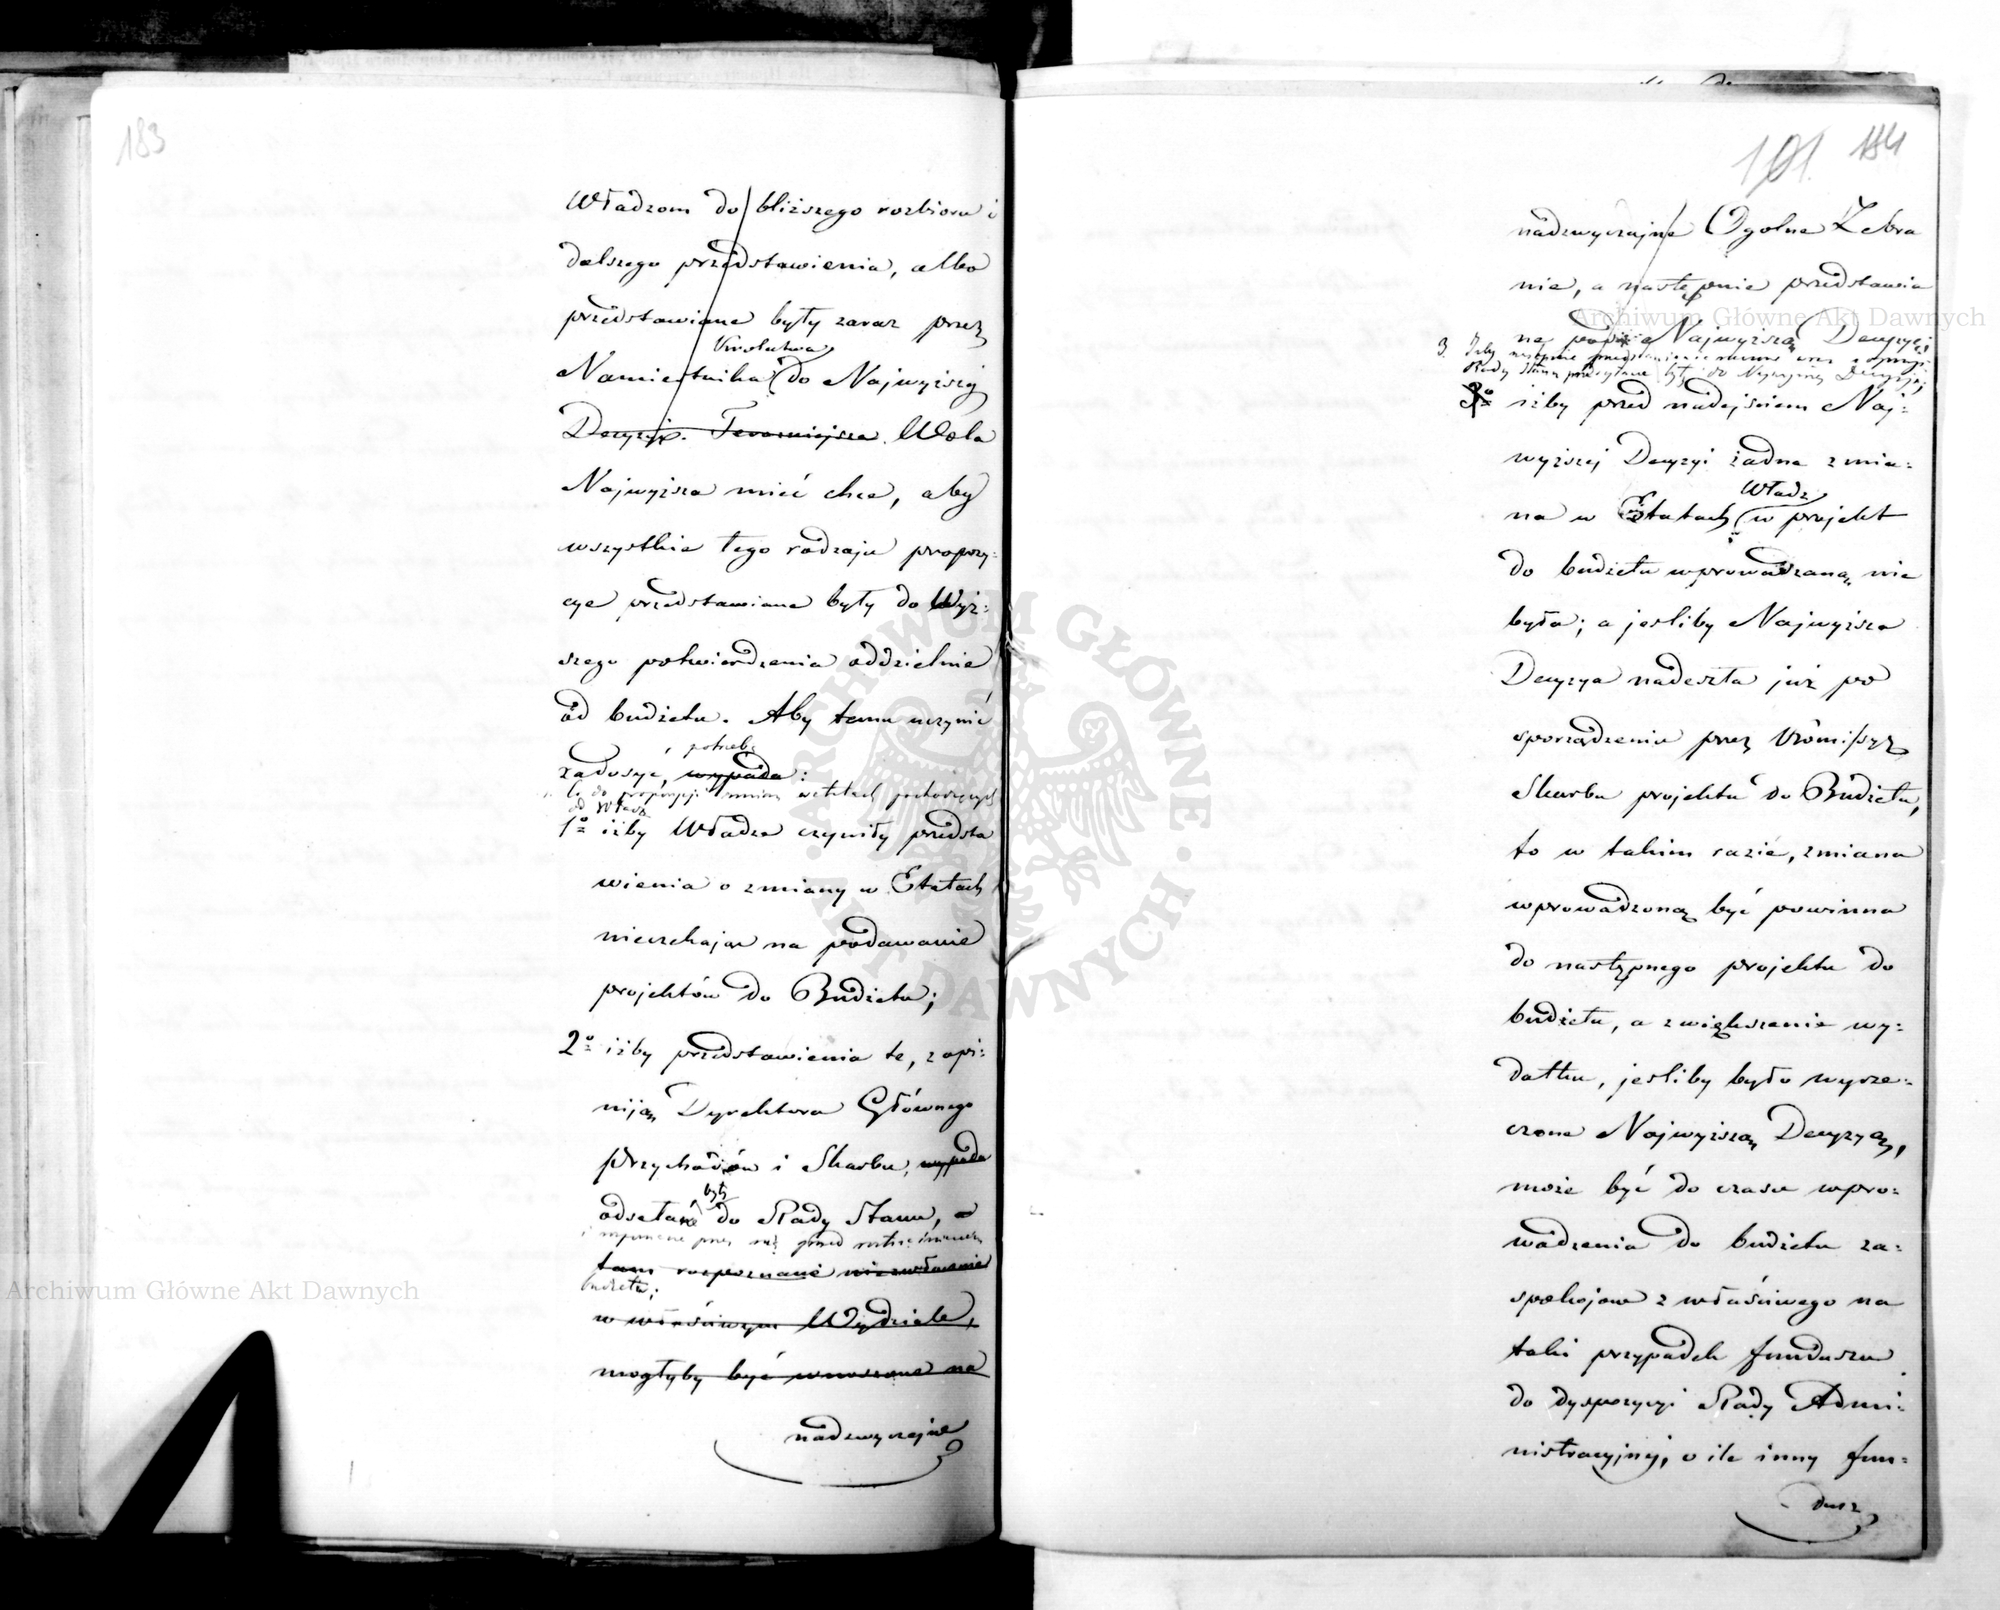 183
Władzom do bliższego rozbioru i
dalszego przedstawienia, albo
przedstawiane były zaraz przez
Królestwa
Namiestnika do Najwyższej
Decyzji. Teraźniejsza Wola
Najwyższa mieć chce, aby
wszystkie tego rodzaju propozy=
cye przedstawiane były do Wyż=
szego potwierdzenia oddzielnie
od budżetu. Aby temu uczynić
potrzeba
zadosyć, wypada:
co do propozycji zmian w etatach pochodzących
od Władz
1º iżby Władze czyniły przedsta
wienia o zmiany w Etatach
nieczekając na podawanie
projektów do Budżetu;
2º iżby przedstawienia te, z opi=
niją Dyrektora Głównego
Przychodów i Skarbu, wypada
były
odsełane do Rady Stanu, a
i przez nią przed
tam rozpoznane niezwłocznie
budżetu;
w właściwym Wydziale,
mogłyby być wnoszone na
nadzwyczajne
101. 184
nadzwyczajne Ogolne Zebra
nie, a następnie przedstawia
ne pod Najwyższą Decyzję
3. Iżby następnie przedstawienie wraz z opinją
Rady Stanu przesyłane były do Najwyższej Decyzji;
3º iżby przed nadejściem Naj=
wyższej Decyzyi żadna zmia=
Władz
na w Etatach w projekt
do budżetu wprowadzaną nie
była; a jeśliby Najwyższa
Decyzya nadeszła już po
sporządzeniu przez Kommissyę
Skarbu projektu do Budżetu,
to w takim razie, zmiana
wprowadzoną być powinna
do następnego projektu do
budżetu, a zwiększenie wy=
datku, jeśliby było wyrze=
czone Najwyższą Decyzyą,
może być do czasu wpro=
wadzenia do budżetu za=
spokojone z właściwego na
taki przypadek funduszu
do dyspozycyi Rady Admi=
nistracyjnej, o ile inny fun=
dusz
Archiwum Główne Akt Dawnych
Archiwum Główne Akt Dawnych
ARCHIWUM GŁÓWNE · AKT DAWNYCH ·